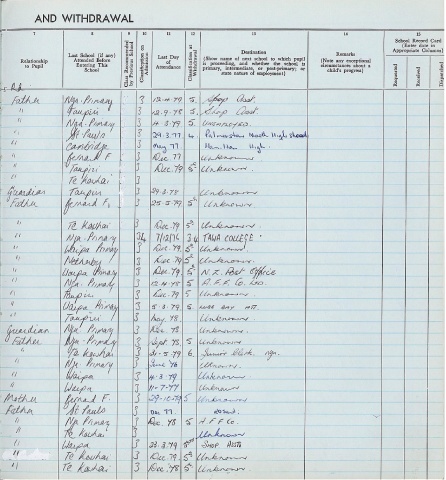 AND WITHDRAWAL
7 8 9 10 11 12 13 14 15
Relationship to Pupil
Last School (if any) Attended Before Entering This School
Class Recommended by Previous School
Classification on Admission
Last Day of Attendance
Classification at Withdrawal
Destination
(Show name of next school to which pupil is proceeding, and whether the school is primary, intermediate, or post-primary; or state nature of employment)
Remarks
(Note any exceptional circumstances about a child's progress)
School Record Card
(Enter date in Appropriate Column)
Requested Received Departed
Father Nga. Primary 3 12-4-79 5 Shop Asst.
" Taupiri 3 12-9-78 5 Shop Asst.
" Nga. Primary 3 5
" St Pauls 3 29.3.77 4 Palmerston North High School
" Cambridge 3 May 77 Hamilton High.
" Bernard F 3 Dec 77 Unknown
" Taupiri 3 Dec 79 5 Unknown.
" Te Kauhai 3
Guardian Taupiri 3 29.3.78 Unknown
Father Bernard F. 3 25-5-79 5 Unknown
" Te Kauhai 3 Dec. 79 5 Unknown.
" Nga. Primary TAWA COLLEGE
" Waipa Primary 3 Dec. 79 5 Unknown.
" 3 Dec 79 5 Unknown.
" Waipa Primary 3 Dec 79 5 N.Z. Post Office
" Nga. Primary 3 12-4-78 5 A.F.F. Co. Ltd.
" Taupiri 3 Dec 79 5 Unknown
" Waipa Primary 3 5-3-79 5
" Taupiri 3 May 78 Unknown.
Guardian Nga Primary 3 Dec 78 Unknown
Father Nga. Primary 3 Sept 78 5 Unknown
" Te Kauhai 3 31-5-79 6 Junior Clerk. Nga.
" Nga Primary 3 June 78 Unknown.
" Waipa 3 Unknown
" Waipa 3 11-7-77 Unknown
Mother Bernard F. 3 29-10-79 5 Unknown
Father St Pauls 3 Dec 77.
" Nga Primary 3 Dec. 78 5 A F F Co.
" Te Kauhai 3 Unknown
" Waipa 3 23.3.79 SHOP ASST
" Te Kauhai 3 Dec 79 5 Unknown
" Te Kauhai 3 Dec '78 5 Unknown